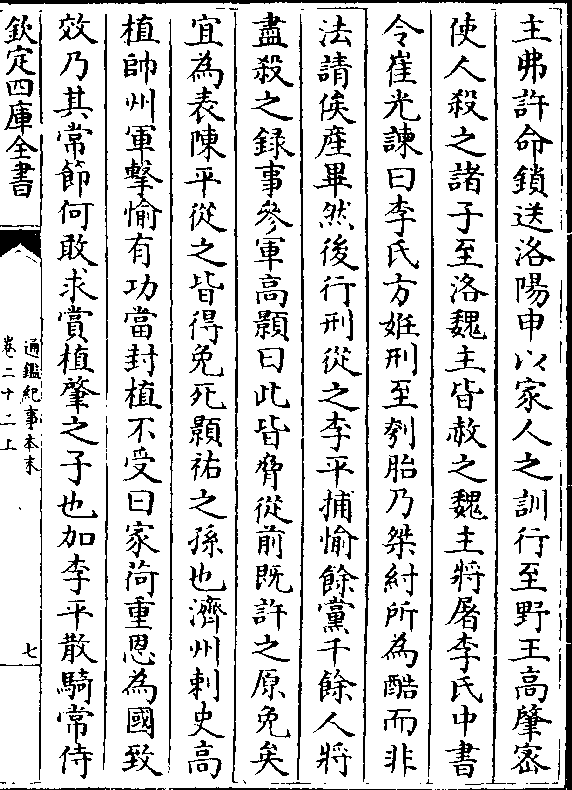 主弗許命鎖送洛陽申以家人之訓行至野王高肇宻
使人殺之諸子至洛魏主皆赦之魏主將屠李氏中書
令崔光諫曰李氏方姙刑至刳胎乃桀紂所為酷而非
法請俟産畢然後行刑從之李平捕愉餘黨千餘人將
盡殺之録事參軍高顥曰此皆脅從前既許之原免矣
宜為表陳平從之皆得免死顥祐之孫也濟州刺史高
植帥州軍擊愉有功當封植不受曰家荷重恩為國致
效乃其常節何敢求賞植肇之子也加李平散騎常侍
欽定四庫全書
通鑑紀事本末
卷二十二上
七